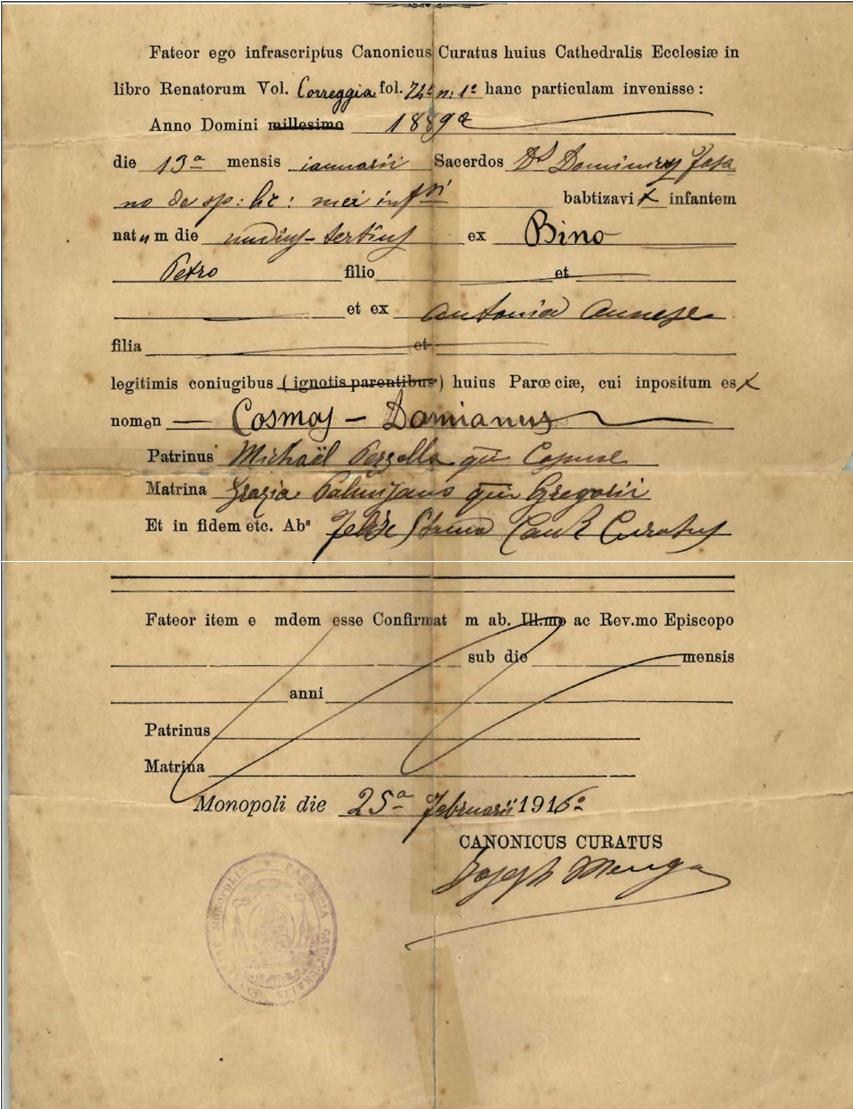 Fateor ego infrascriptus Canonicus Curatus huius Cathedralis Ecclesiæ in
libro Renatorum Vol. Correggia fol. 74ᵗ n. 1º hanc particulam invenisse :
Anno Domini millesimo 1889º
die 13ª mensis ianuarii Sacerdos Dˢ Dominicus Fasa
no de sp: lic: mei infⁱ babtizavi t infantem
natum die nudius-tertius ex Bino
Petro filio et
et ex Antonia Annese
filia et
legitimis coniugibus (ignotis parentibus) huius Parœciæ, cui inpositum est
nomen — Cosmos - Damianus
Patrinus Michaël
Matrina Grazia Palmijano qm Gregorii
Et in fidem etc. Abˢ Can. Curatus
Fateor item e mdem esse Confirmat m ab. Ill.mo ac Rev.mo Episcopo
sub die mensis
anni
Patrinus
Matrina
Monopoli die 25ª Februarii 1916º
CANONICUS CURATUS
Joseph Menga